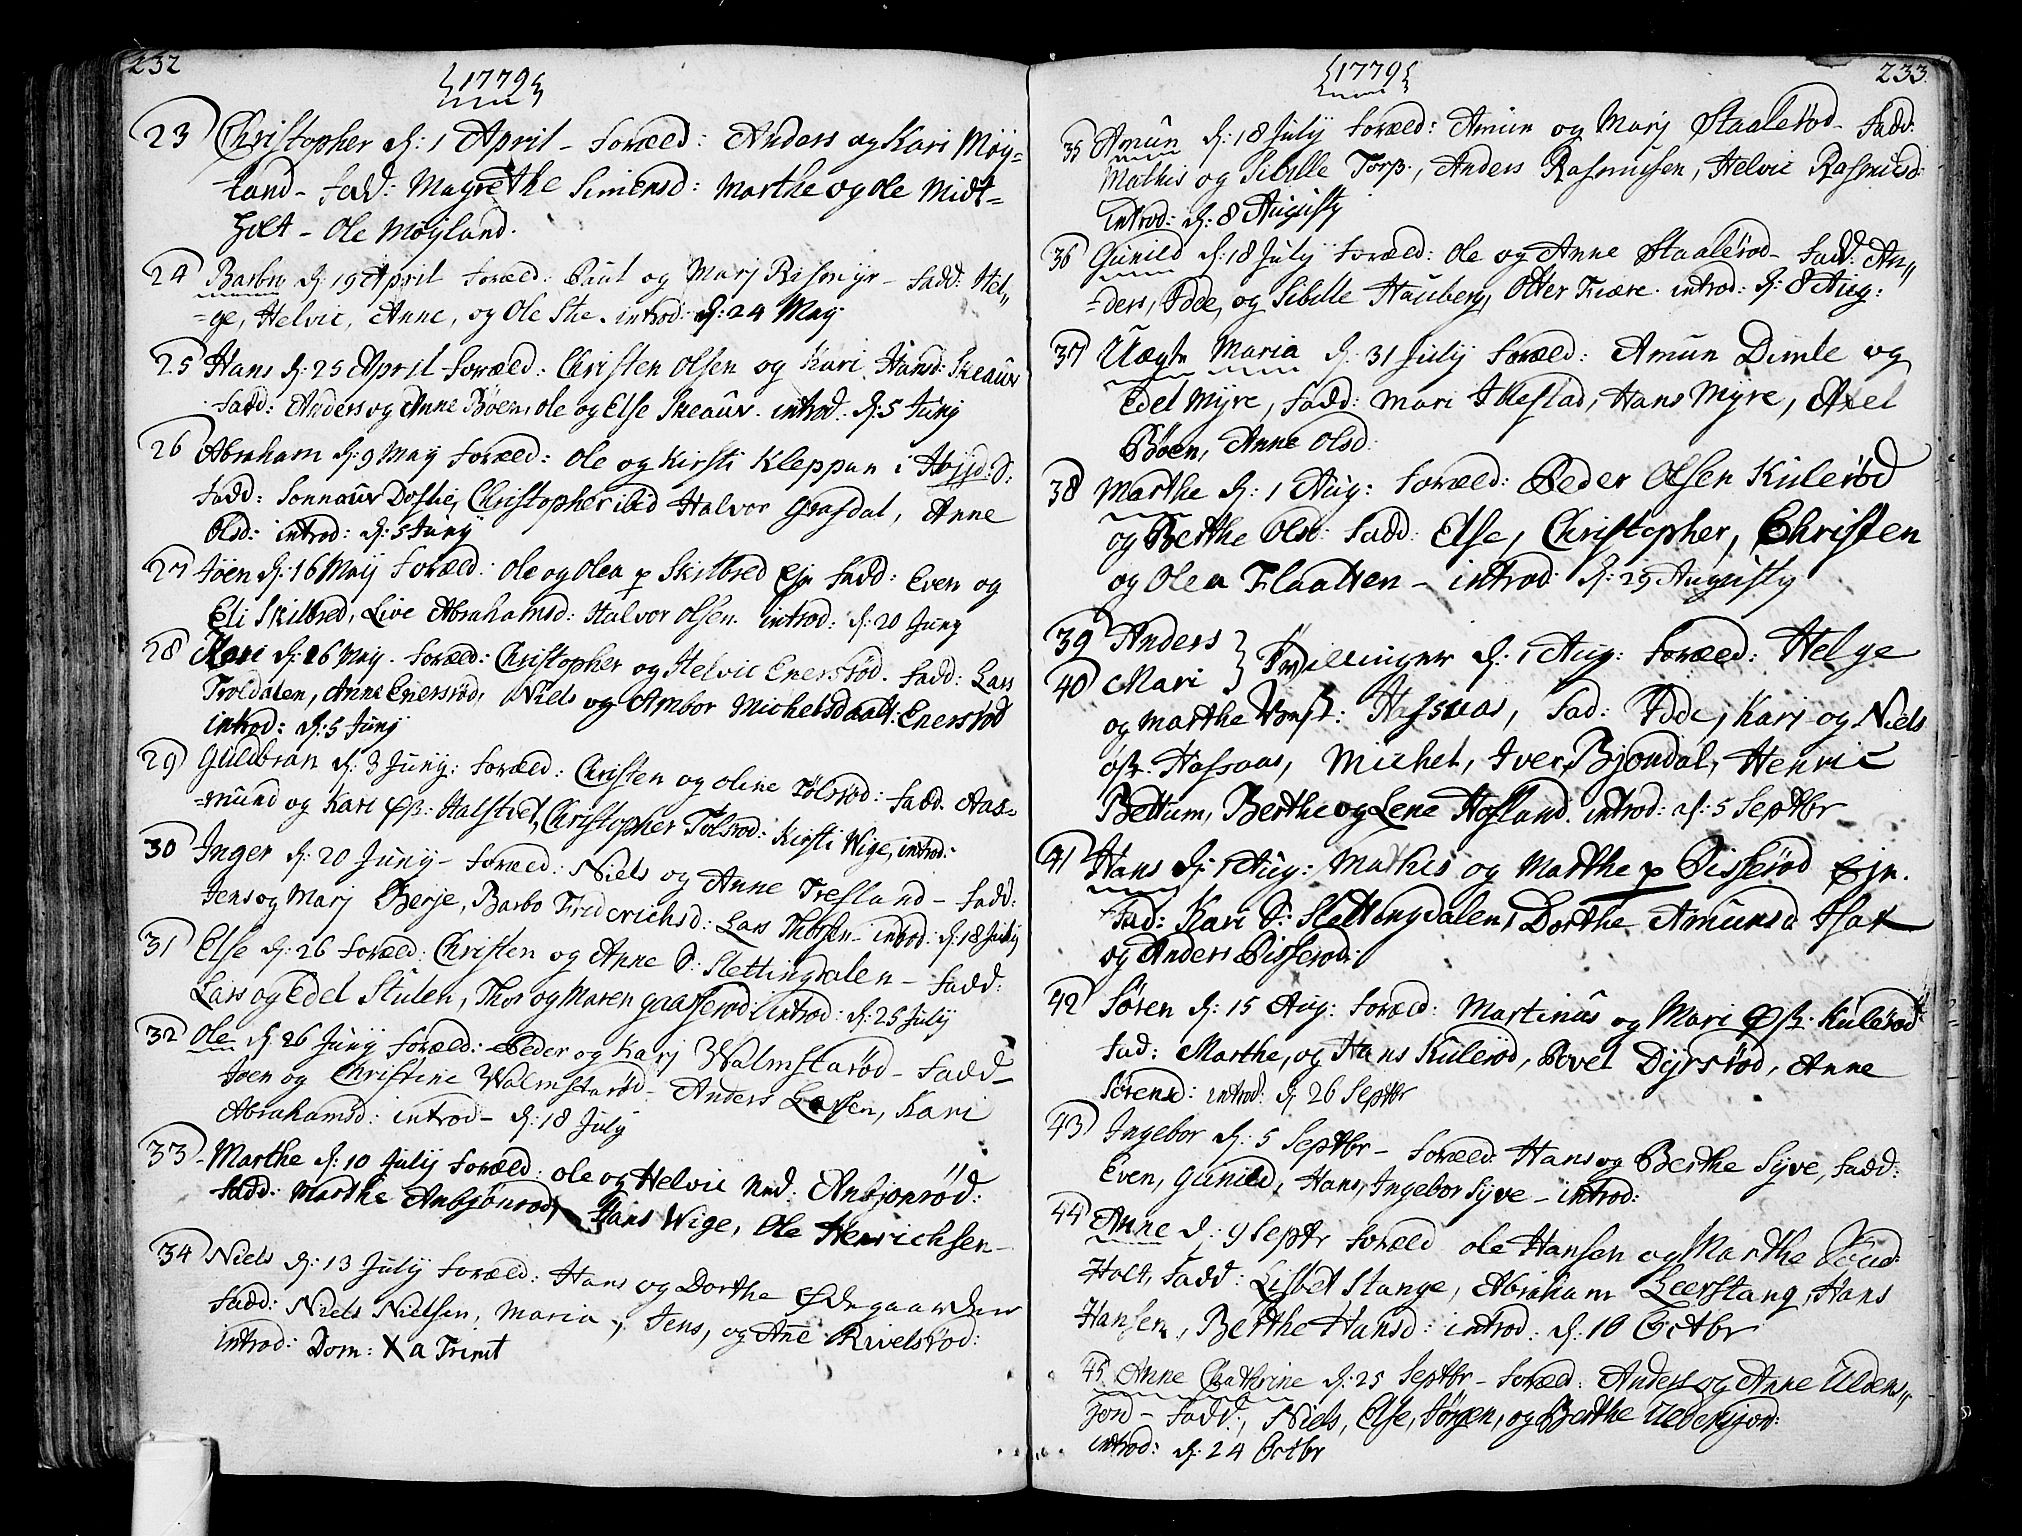 232
1779
23 Christopher d: 1 April - Foræld: Anders og Kari Møy=
land - Fadd: Magrethe Simensd: Marthe og Ole Midt=
holt - Ole Møyland.
24 Barbro d: 19 April Foræld: Paul og Marj Rismyr - Fadd: Hel„
=ge, Helvic, Anne, og Ole Ske. introd: d: 24 May
25 Hans d: 25 April Foræld: Christen Olsen og Kari Hansd: Skeaur
Fadd: Anders og Anne Bøen, Ole og Else Skeaur. introd: d: 5 Juny
26 Abraham d: 9 May Foræld: Ole og Kirsti Kleppan i S:
Fadd: Sonnaur Christopher ibid Halvor Grasdal, Anne
Olsd: introd: d: 5 Juny
27 Joen d: 16 May Foræld: Ole og Olea p Skilbred Ejn Fadd: Even og
Eli Skilbred, Live Abrahamsd: Halvor Olsen. introd: d: 20 Juny
28 Kari d: 16 May. Foræld: Christopher og Helvic Enersrød. Fadd: Lars
Troldalen, Anne Enersrød, Niels og Ambor Michelsdaatt: Enersrød
introd: d: 5 Juny
29 Guldbran d: 3 Juny: Foræld: Christen og Oline Tolsrød: Fadd. Aas=
=mund og Kari Øst: Halstvet, Christopher Tolsrød: Kirsti Wige, introd:
30 Inger d: 20 Juny - Foræld: Niels og Anne Trefland - Fadd:
Jens og Marj Berje, Barbo Friderichsd: Lars Thorsen - introd: d: 18 July
31 Else d: 26 Foræld: Christen og Anne S: Slettingdalen - Fadd:
Lars og Edel Stulen, Thor og Maren Gaasserød introd: d: 25 July
32 Ole d: 26 Juny Foræld: Peder og Karj Walmstarød - Fadd -
Joen og Christine Walmstarød - Anders Larsen, Kari
Abrahamsd: introd - d: 18 July
33 Marthe d: 10 July Foræld: Ole og Helvic Ned: Ansjonrød:
Fadd: Marthe Ansjonrød, Hans Wige, Ole Henrichsen -
34 Niels d: 13 July Foræld: Hans og Dorthe Ødegaarden
Fadd: Niels Nielsen, Maria, Jens, og Ane Rivelsrød:
introd: Dom: X a Trinit
233.
1779
35 Amun d: 18 July Foræld: Amun og Marj Staalerød - Fadd:
Mathis og Sibille Torp, Anders Rasmusen, Helvic Rasmusd:
introd: d: 8 Augusty
36 Gunild d: 18 July Foræld: Ole og Anne Staalerød - Fadd: An„
=ders, Idde, og Sibille Hauberg, Otter Kiære. introd: d: 8 Aug:
37 Uægte Maria d: 31 July Foræld: Amun Dimle og
Edel Myre, Fadd: Mari Ikestad, Hans Myre, Axel
Bøen, Anne Olsd:
38 Marthe d: 1 Aug: Foræld: Peder Olsen Kulerød
og Berthe Olsd: Fadd: Else, Christopher, Christen
og Olea Flaatten - introd: d: 29 Augusty
39 Anders } Tvillinger d: 1 Aug: Foræld: Helge
40 Mari
og Marthe Hafsaas, Fad: Idde, Kari og Niels
øst. Hafsaas, Michel, Iver Bjondal, Henric
Bettum, Berthe og Lene Hofland. introd: d: 5 Septbr
41 Hans d: 1 Aug: Mathis og Marthe p Pisserød Ejn.
Fad: Kari S: Slettingdalen, Dorthe Amunsd Isak
og Anders Pisserød:
42 Søren d: 15 Aug: Foræld: Martinus og Mari Øst. Kulerød
Fad: Marthe, og Hans Kulerød, Povel Dyrsrød, Anne
Sørensd: introd: d: 26 Septbr
43 Ingebor d: 5 Septbr - Foræld: Hans og Berthe Syve, Fadd:
Even, Gunild, Hans, Ingebor Syve - introd:
44 Anne d: 9 Septr Foræld Ole Hansen og Marthe
Holt, Fadd: Lisbet Stange, Abraham Leerstang, Hans
Hansen, Berthe Hansd: introd: d: 10 Octbr
45 Anne Chathrine d: 25 Septbr - Foræld: Anders og Anne Ulens„
jord - Fadd: Niels, Else, Jørgen, og Berthe
introd: d: 24 Octbr